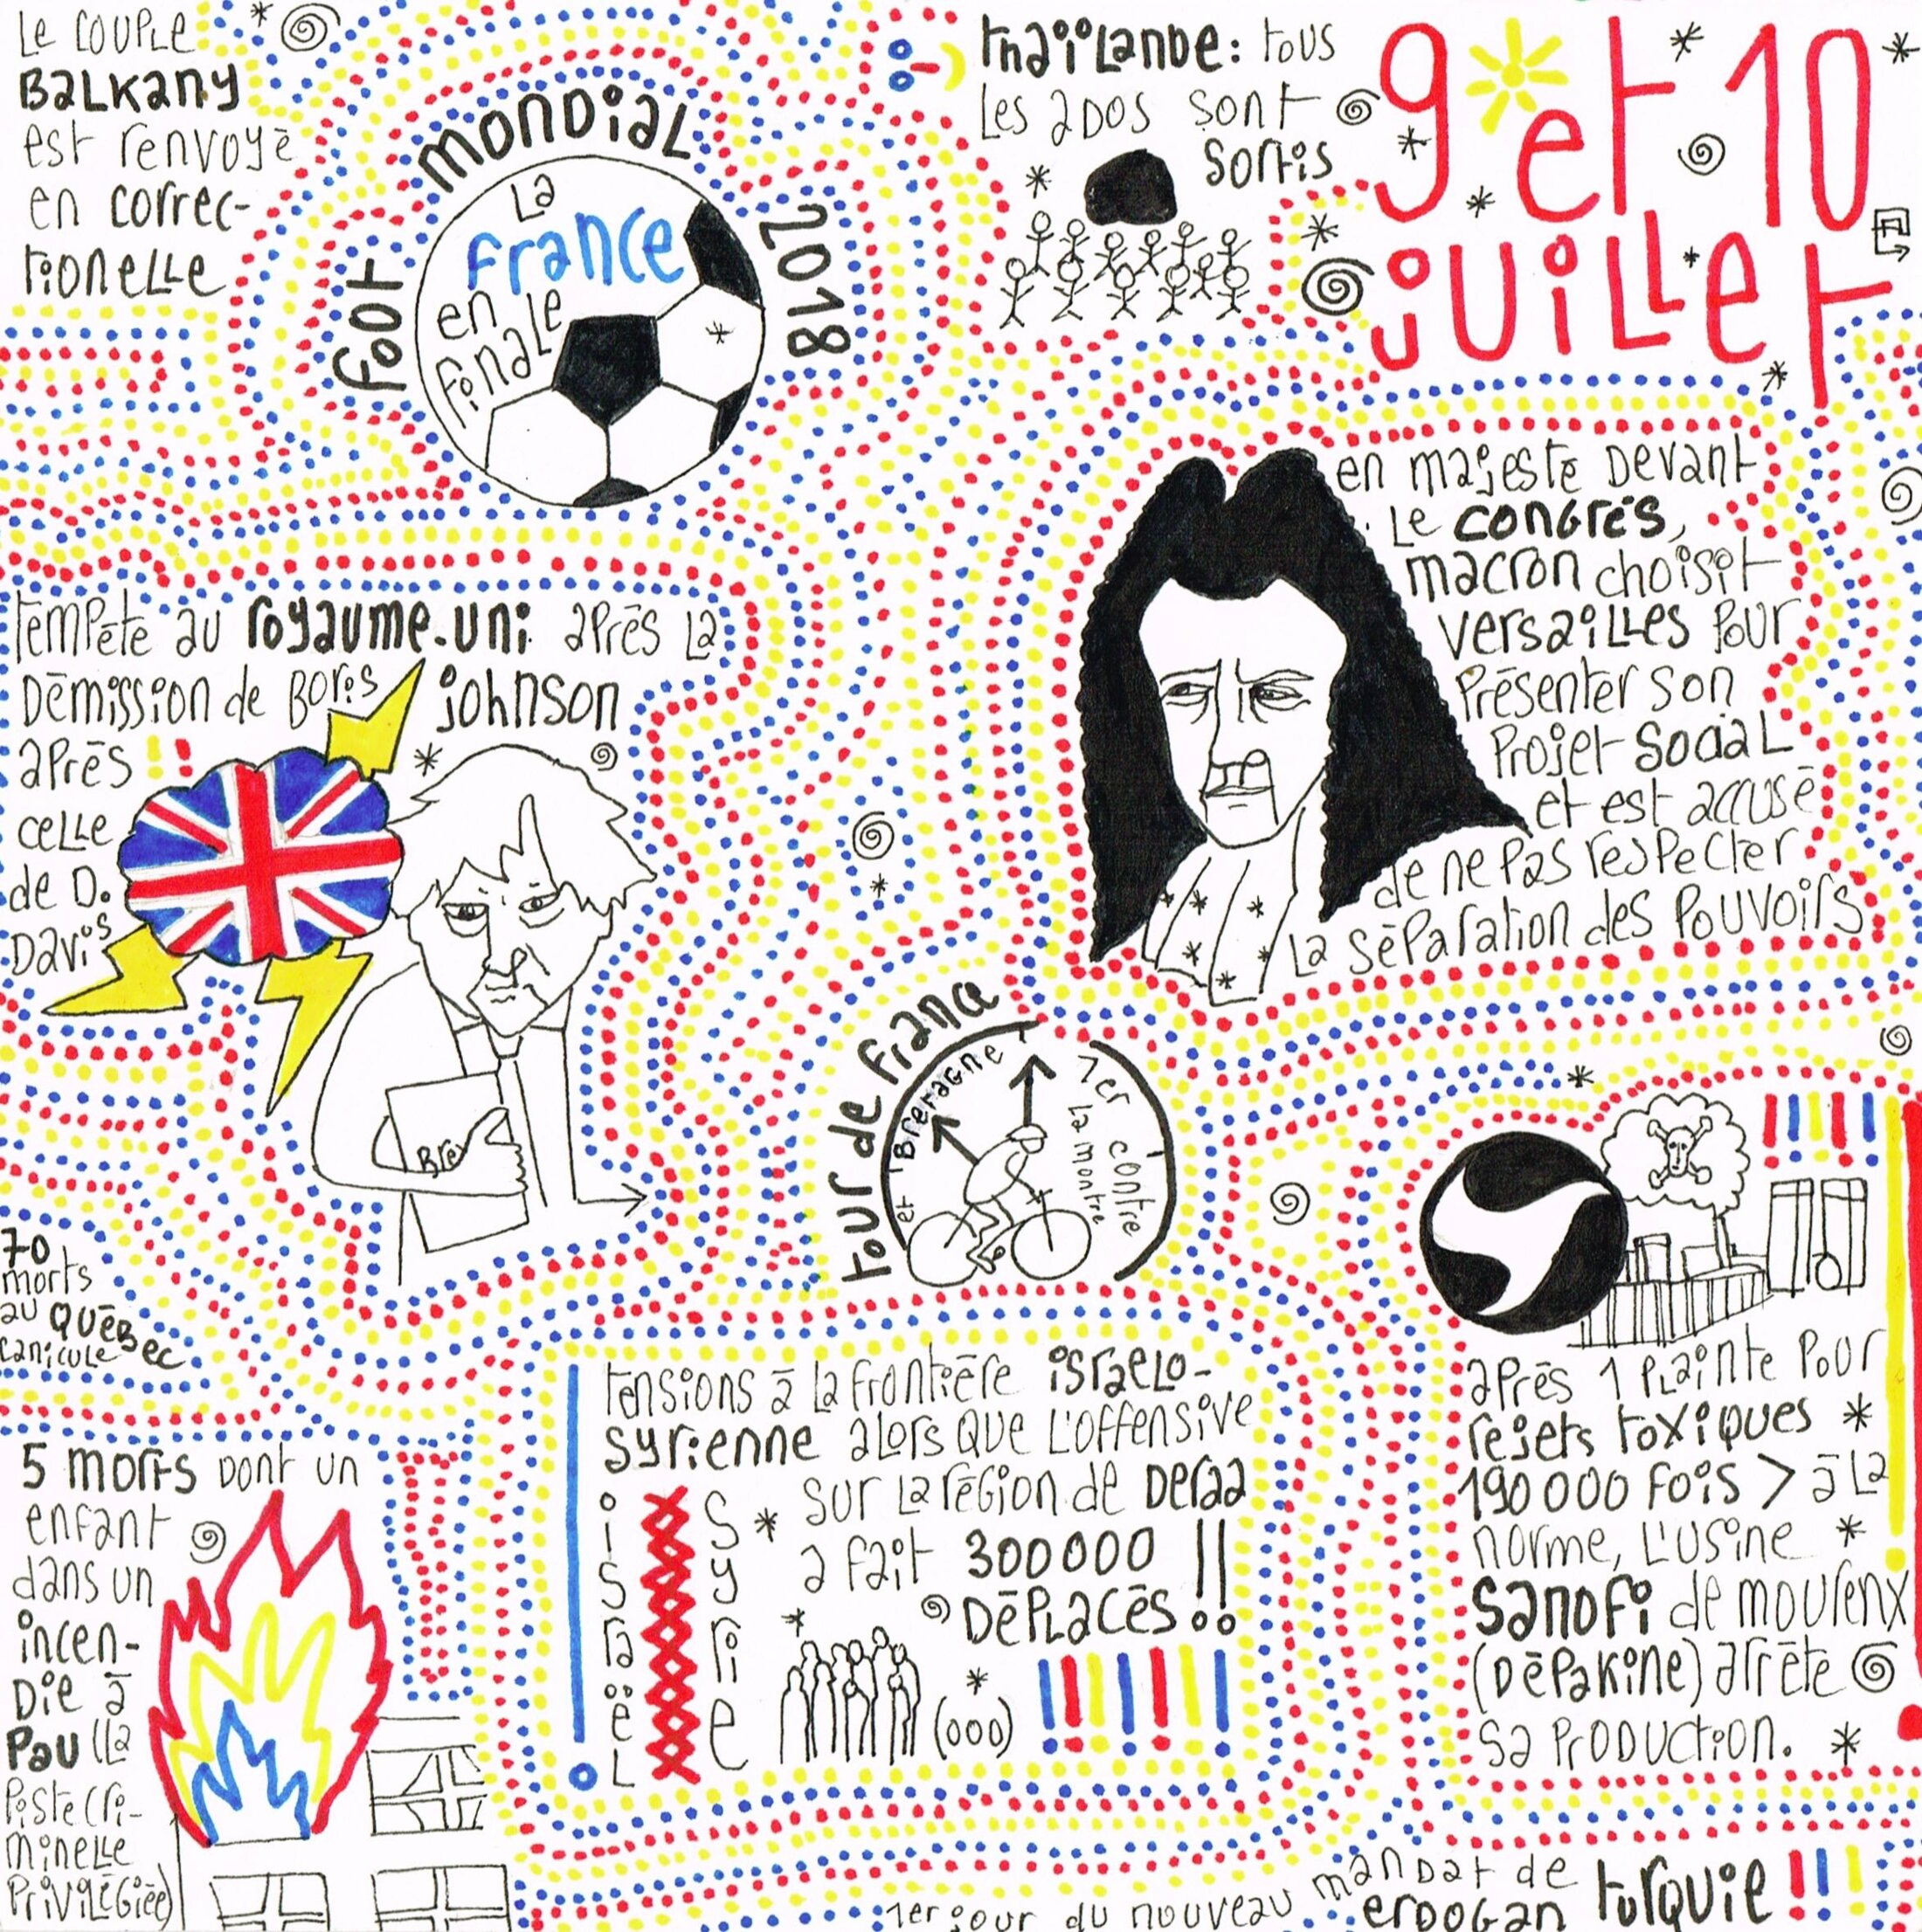 Le couple
Balkany
est renvoyé
en correc-
tionelle
foot mondial 2018
La
France
en
finale
Thaïlande: tous
les ados sont
sortis
9 et 10
juillet
en majesté devant
le congrès,
macron choisit
versailles pour
présenter son
projet social
et est accusé
de ne pas respecter
la séparation des pouvoirs
tempête au royaume-uni après la
démission de Boris Johnson
après
celle
de D.
Davis
Brex
tour de france
et Bretagne
1er contre
la montre
70
morts
au Québec
canicule
5 morts dont un
enfant
dans un
incen-
die à
Pau (la
piste cri-
minelle
privilégiée)
tensions à la frontière israelo-
syrienne alors que l'offensive
sur la région de Deraa
a fait 300000
déplacés !!
israël
syrie
(000)
après 1 plainte pour
rejets toxiques
190 000 fois > à la
norme, l'usine
sanofi de mourenx
(dépakine) arrête
sa production.
1er jour du nouveau mandat de
erdogan turquie !!!